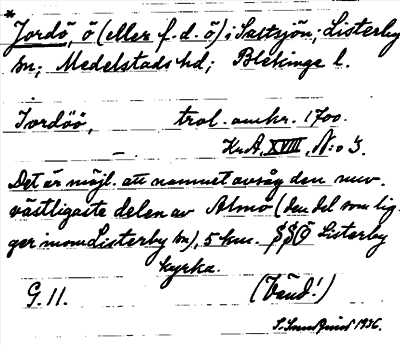 * Jordö, ö (eller f.d. ö) i Saltsjön; Listerby
sn; Medelstads hd; Blekinge l.
Jordöö, trol. omkr. 1700.
KrA, XVIII, N:o 3.
Det är möjl. att namnet avsåg den nuv.
västligaste delen av Almö (den del som lig-
ger inom Listerby sn), 5 km. SSÖ Listerby
kyrka.
G. 11. (Vänd!)
1936.